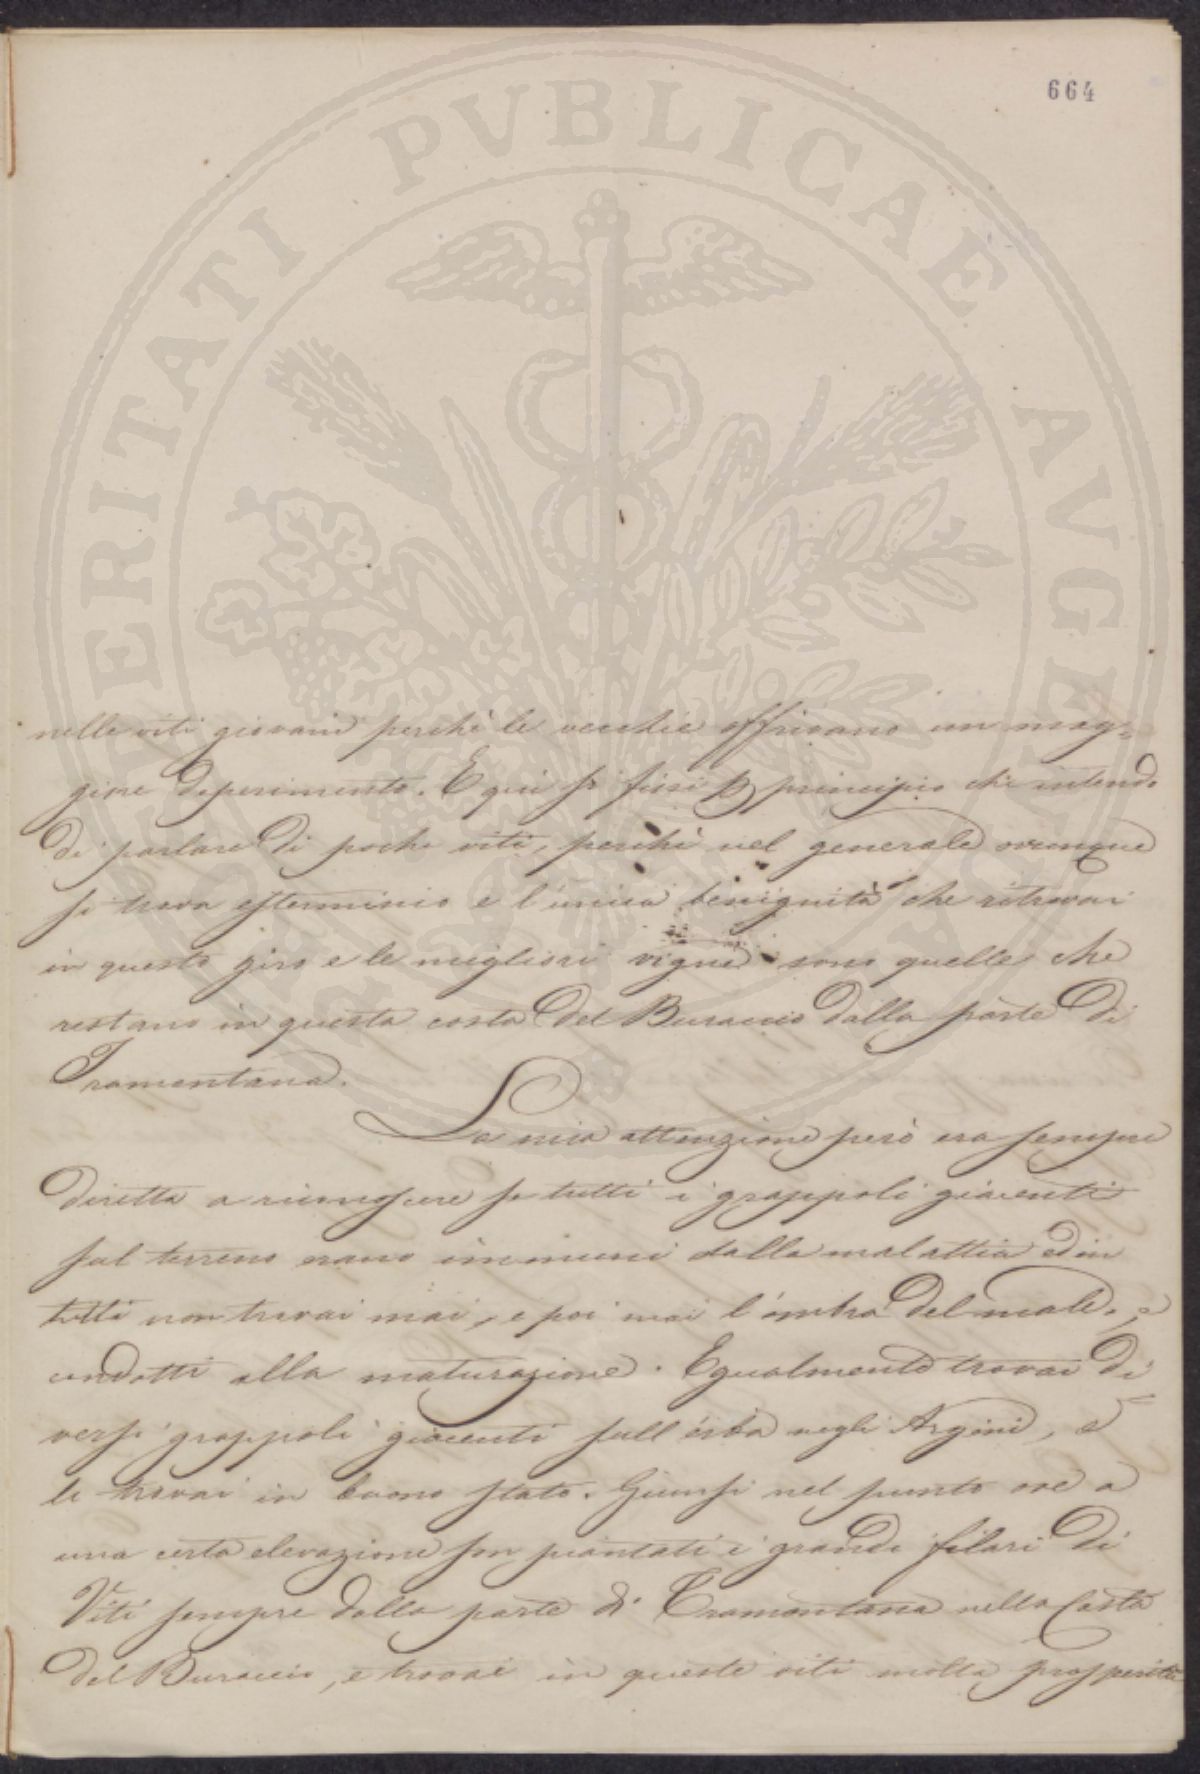 664
PROSPERITATI PVBLICAE AVGENDAE
nelle viti giovani perchè le vecchie offrivano un mag=
giore deperimento. E qui si fissi p principio che intendo
di parlare di poche viti, perchè nel generale ovunque
si trova esterminio e l'unica benignità che ritrovai
in questo giro e le migliori vigne sono quelle che
restano in questa costa del Buraccio dalla parte di
Tramontana.
La mia attenzione però era sempre
diretta a riconoscere se tutti i grappoli giacenti
sul terreno erano immuni dalla malattia ed in
tutti non trovai mai, e poi mai l'ombra del male, e
condotti alla maturazione. Egualmente trovai di
versi grappoli giacenti sull'erba negli Argini, e
li trovai in buono stato. Giunsi nel punto ove a
una certa elevazione son piantati i grandi filari di
Viti sempre dalla parte di Tramontana nella Costa
del Buraccio, e trovai in queste viti molta prosperità